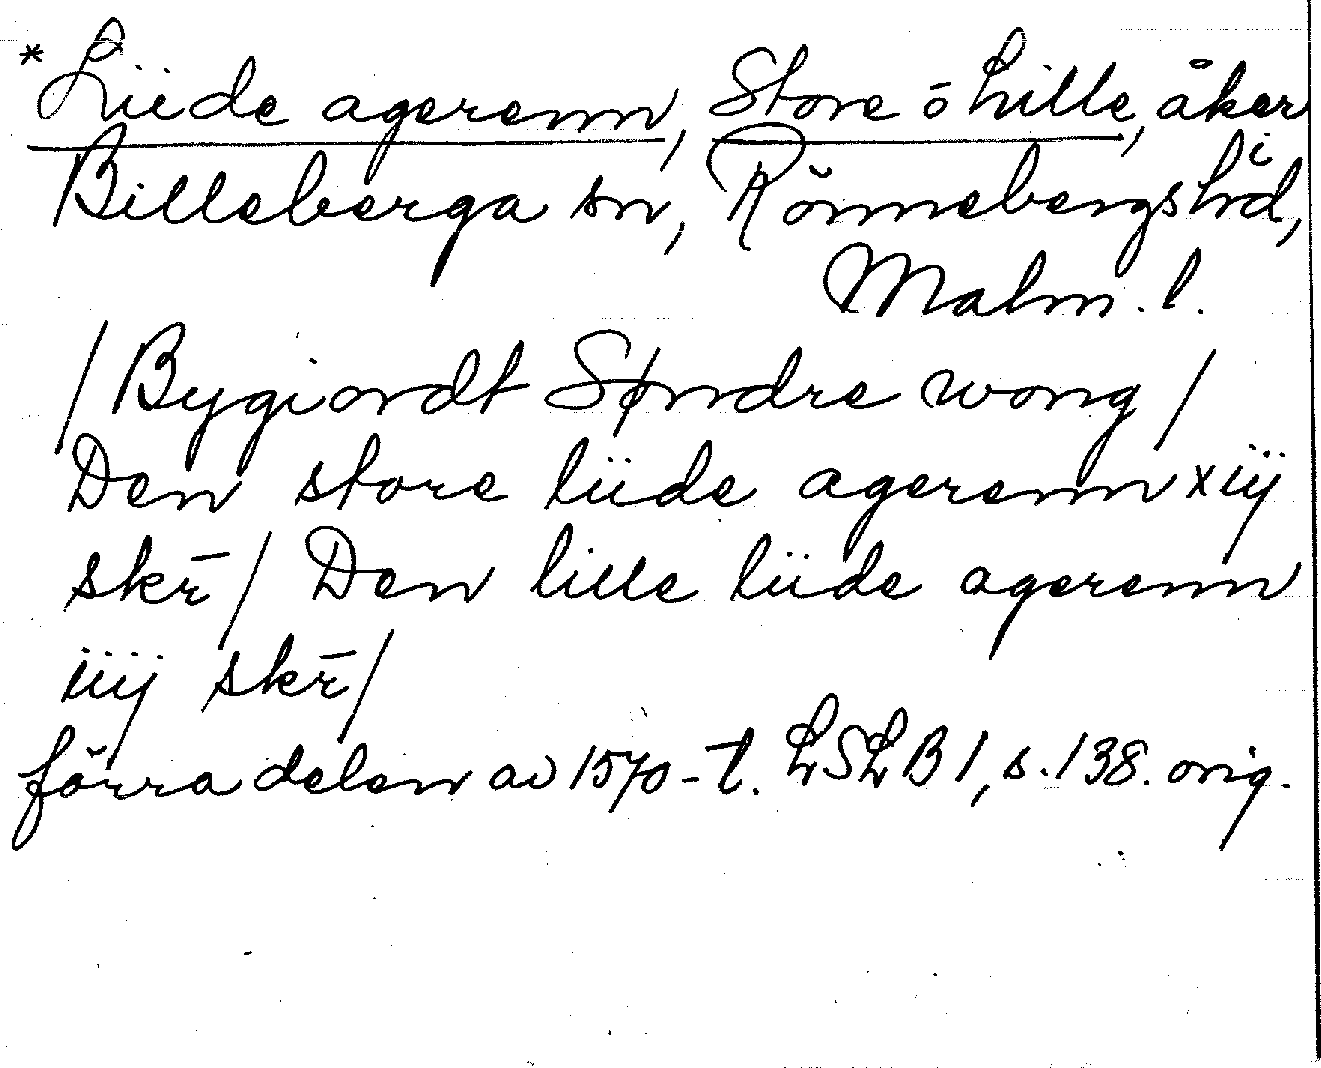 *Liide agerenn, Store o Lille, åker i
Billeberga sn, Rönnebergs hd,
Malm. l.
/ Bygiordt Søndre wong /
Den store liide agerenn xiij
skr̄ / Den lille liide agerenn
iiij skr̄ /
förra delen av 1570-t. LSLB 1, s. 138. orig.